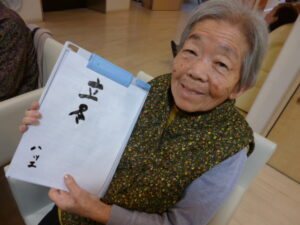 立冬
ハツエ